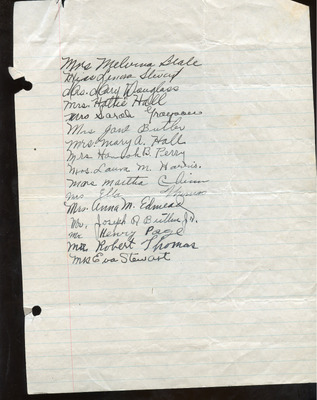 Mrs Melvina Seale
Miss Lenora
Mrs. Mary Douglass
Mrs. Hattie Hall
Mrs Sarah Grayson
Mrs Jane Butler
Mrs. Mary A. Hall
Mrs Hannah B. Perry
Mrs. Laura M. Harris.
Mrs Martha
Mrs. Ella
Mrs. Anna M.
Mr. Joseph P Butler Jr.
Mr Henry Page
Mr Robert Thomas
Mrs Eva Stewart